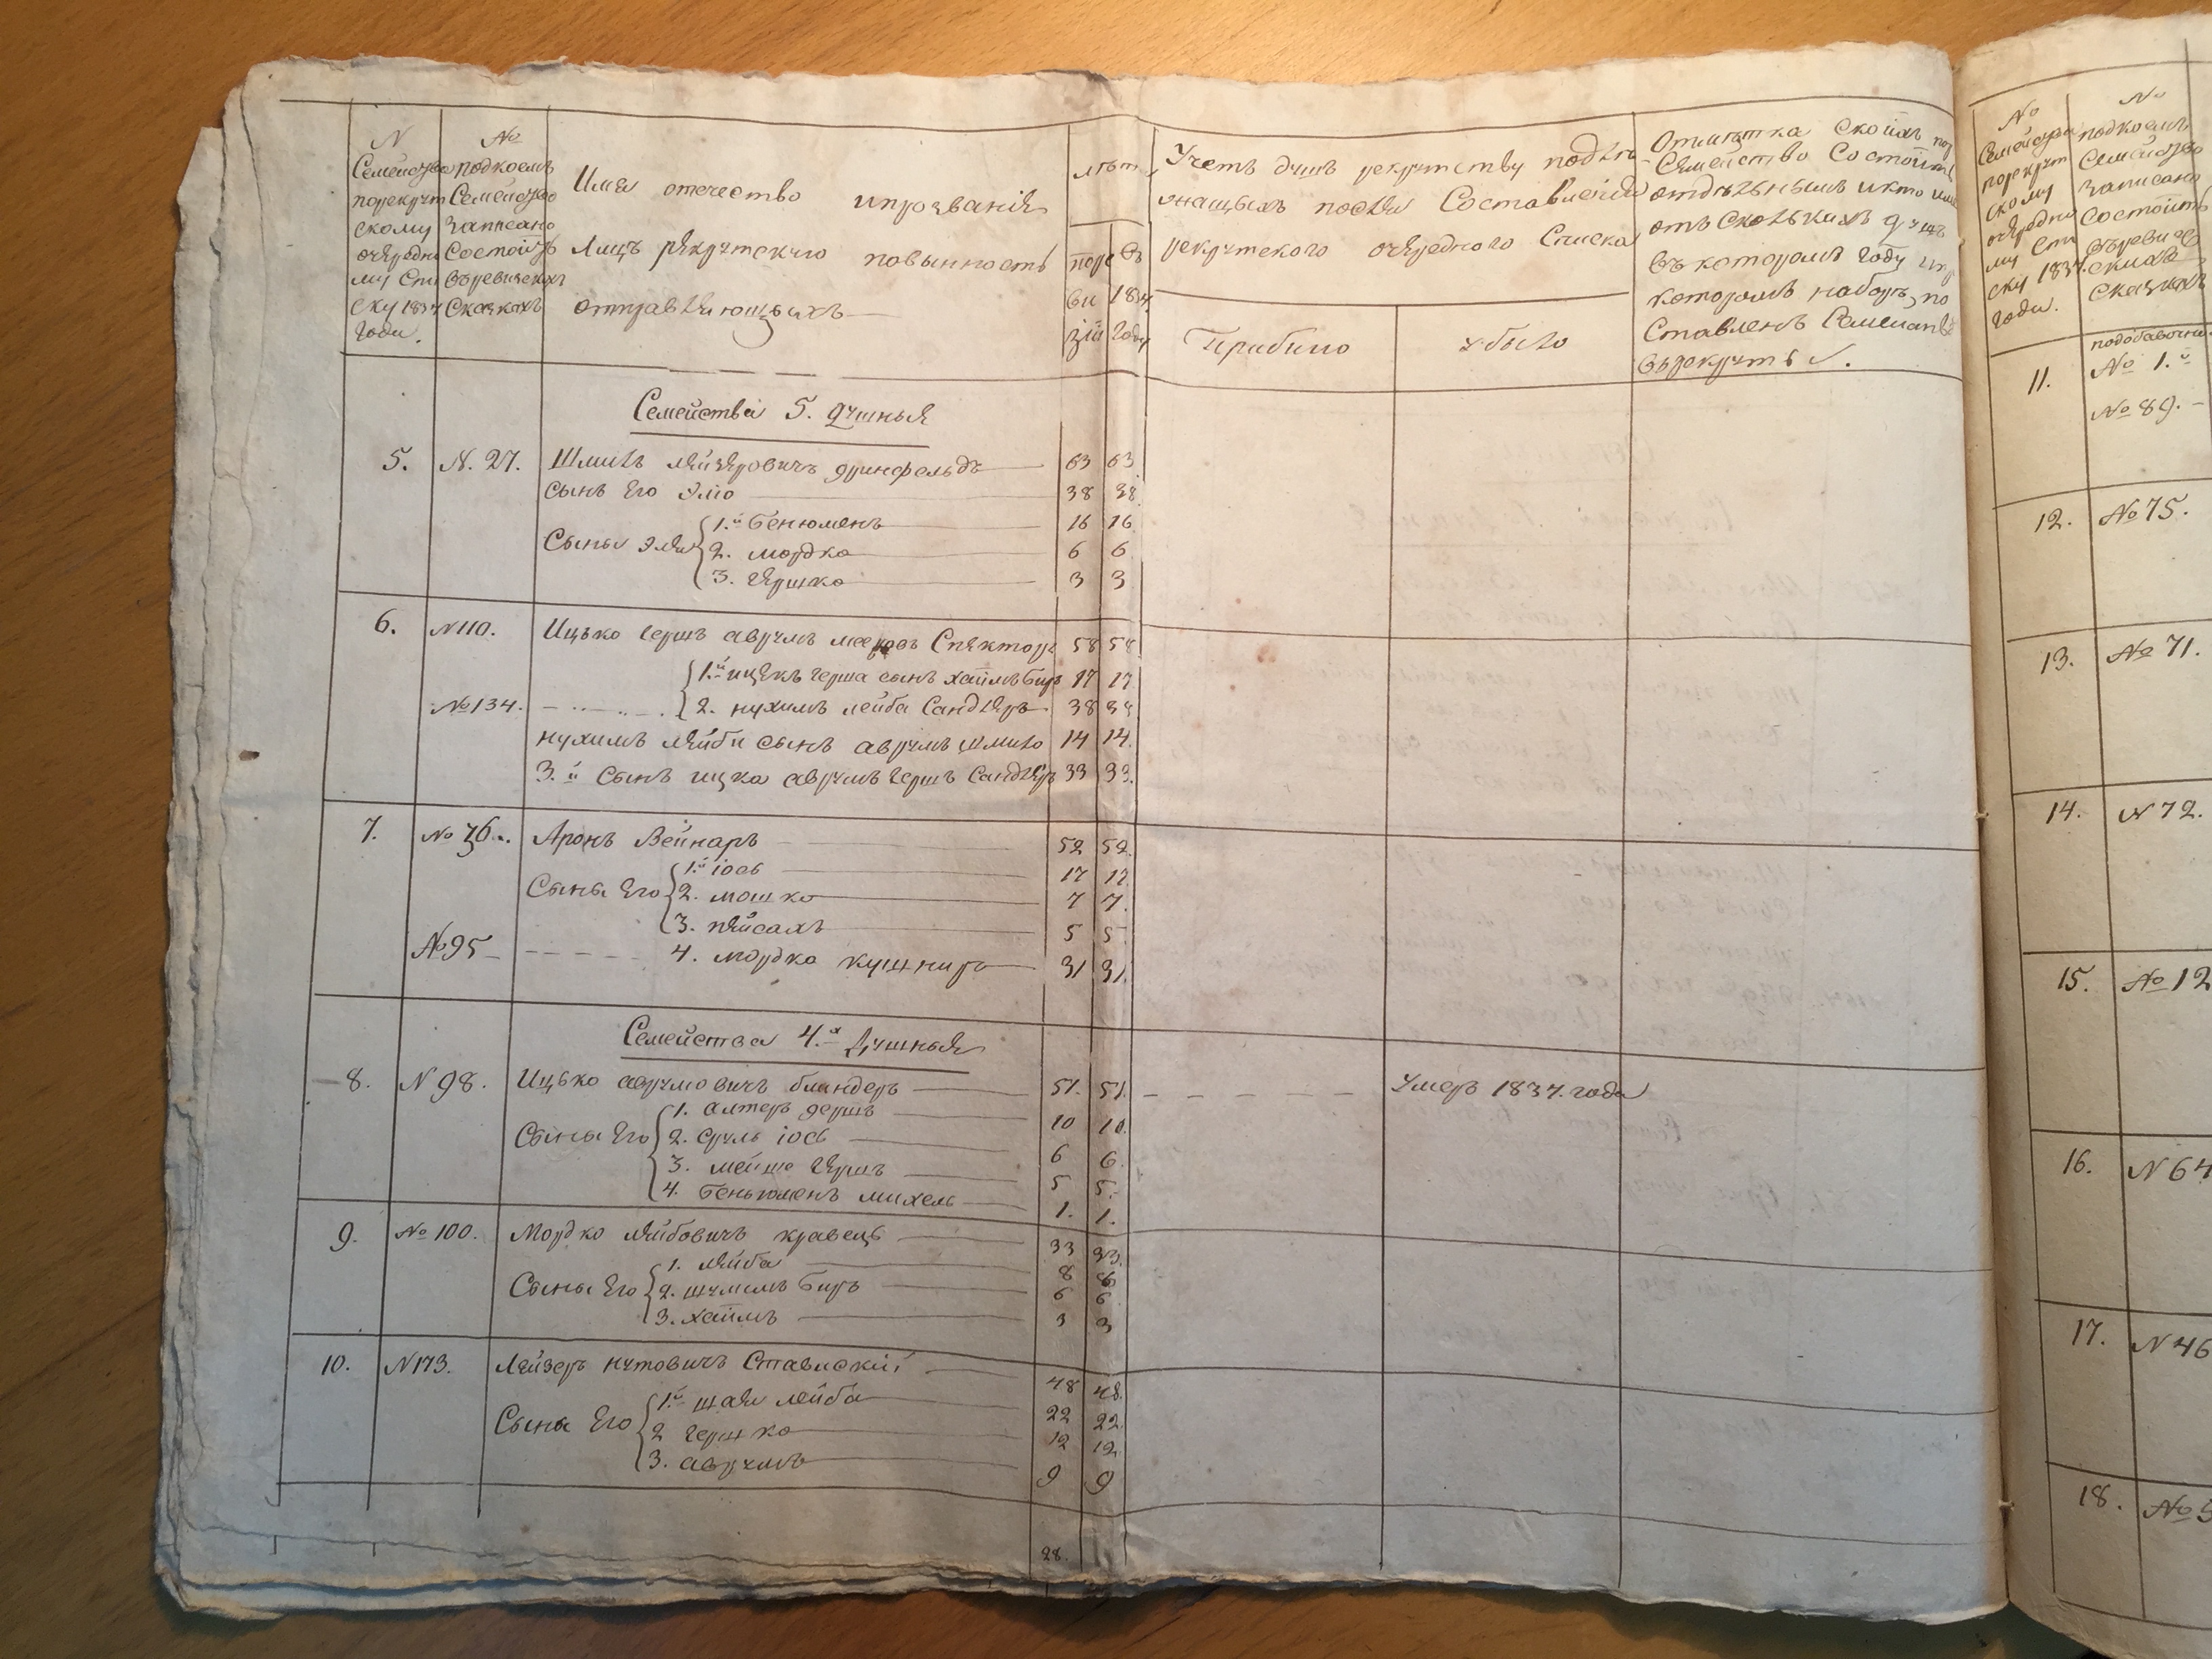 N
Семейства
порекрут
скому
очередно
му Спи
ску 1834
Года.
№
подкоемъ
Семейство
записано
Состоитъ
Въревизскихъ
Сказкахъ
Имя отечество ипрозванія
Лицъ рекрутскую повынность
отправляющыхъ
лѣтъ
поре
ви
зіи
Въ
1834
Году
Учетъ душъ рекрутству подле
жащыхъ после Составленія
рекрутского очередного Списка
Прибыло
убыло
Отмѣтка Скоихъ
Семейство Состоитъ
отдѣльнымъ икто
отъ Сколькихъ душъ
Въкоторомъ Году
которомъ наборѣ, по
Ставленъ
Върекруты.
Семейства 5. душныя
5. N. 27. Шмиль Лейзеровичъ гринфельдъ 63 63
Сынъ Его Элио 38 38
Сыны Эля 1.й Бенюменъ 16 16
2. мордко 6 6
3. Гершко 3 3
6. N110. Ицько Гершъ аврумъ мееровъ Спекторъ 58 58
1.й ицекъ Герша сынъ хаимъ Беръ 17 17
№134. 2. нухимъ лейба Сандлеръ 38 38
нухимъ Лейби сынъ аврумъ шмило 14 14.
3.й Сынъ ицка аврумъ Гершъ Сандлеръ 33 33.
7. № 76. Аронъ Вейнаръ 52 52.
Сыны Его 1.й іось 17 17
2. мошко 7 7.
3. пейсахъ 5 5
№95 4. мордко кушниръ 31 31.
Семейства 4.х Душныя
8. N 98. Ицько аврумовичъ блиндеръ 51. 51. Умеръ 1837. года
Сыны Его 1. алтеръ гершъ 10 10.
2. Сруль іось 6 6.
3. мейше Гершъ 5 5.
4. Беньюменъ михель 1. 1.
9. № 100. Мордко лейбовичъ кравець 33 33.
Сыны Его 1. лейба 8 8
2. шулимъ Беръ 6 6
3. хаимъ 3 3
10. N173. Лейзеръ нутовичъ Ставискій 48 48.
Сыны Его 1.й шая лейба 22 22.
2 Гершко 12 12.
3. аврумъ 9 9
28.
№
Семейства
порекрут
скому
очередно
му Спи
ску 1834.
Года.
№
подкоемъ
Семейство
записано
Состоитъ
Въревиз
скихъ
Сказкахъ
11. № 1.й
№ 89.
12. № 75.
13. № 71.
14. N 72.
15. № 12
16. N 64
17. N 46
18.